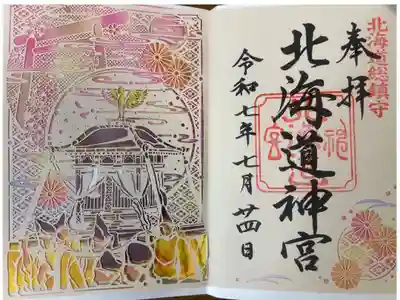 北海道総鎮守
奉拝
北海道神宮
令和七年七月廿四日